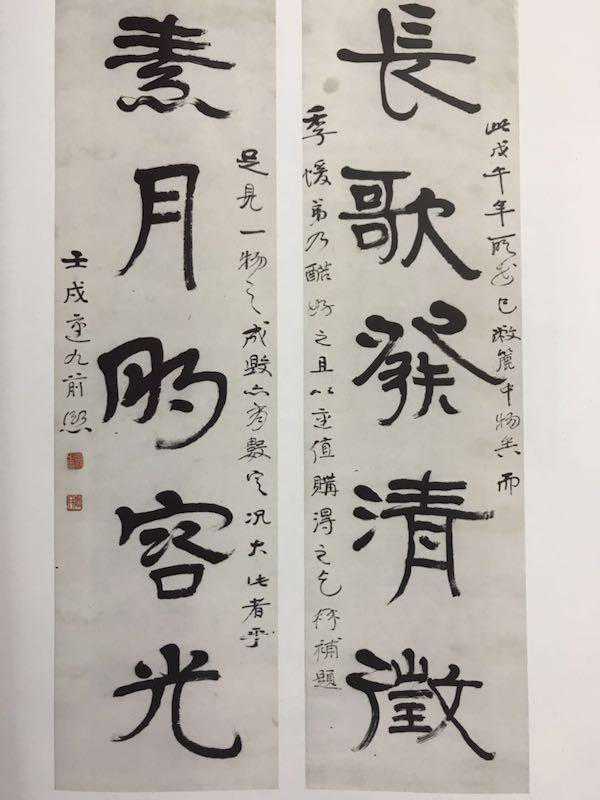 長歌發清徵
此戊午年所書已敝簏中物矣而
季媛弟乃酷好之且以重值購得之乞補題
素月明容光
足見一物之成毀亦有數定況大此者乎
壬戌重九前熙